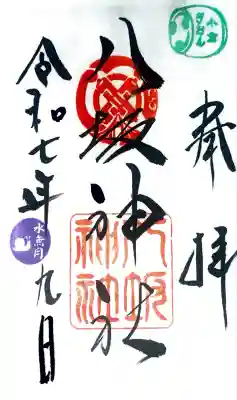 奉拝
八坂神社
八坂
神社
令和七年
九日
水無月